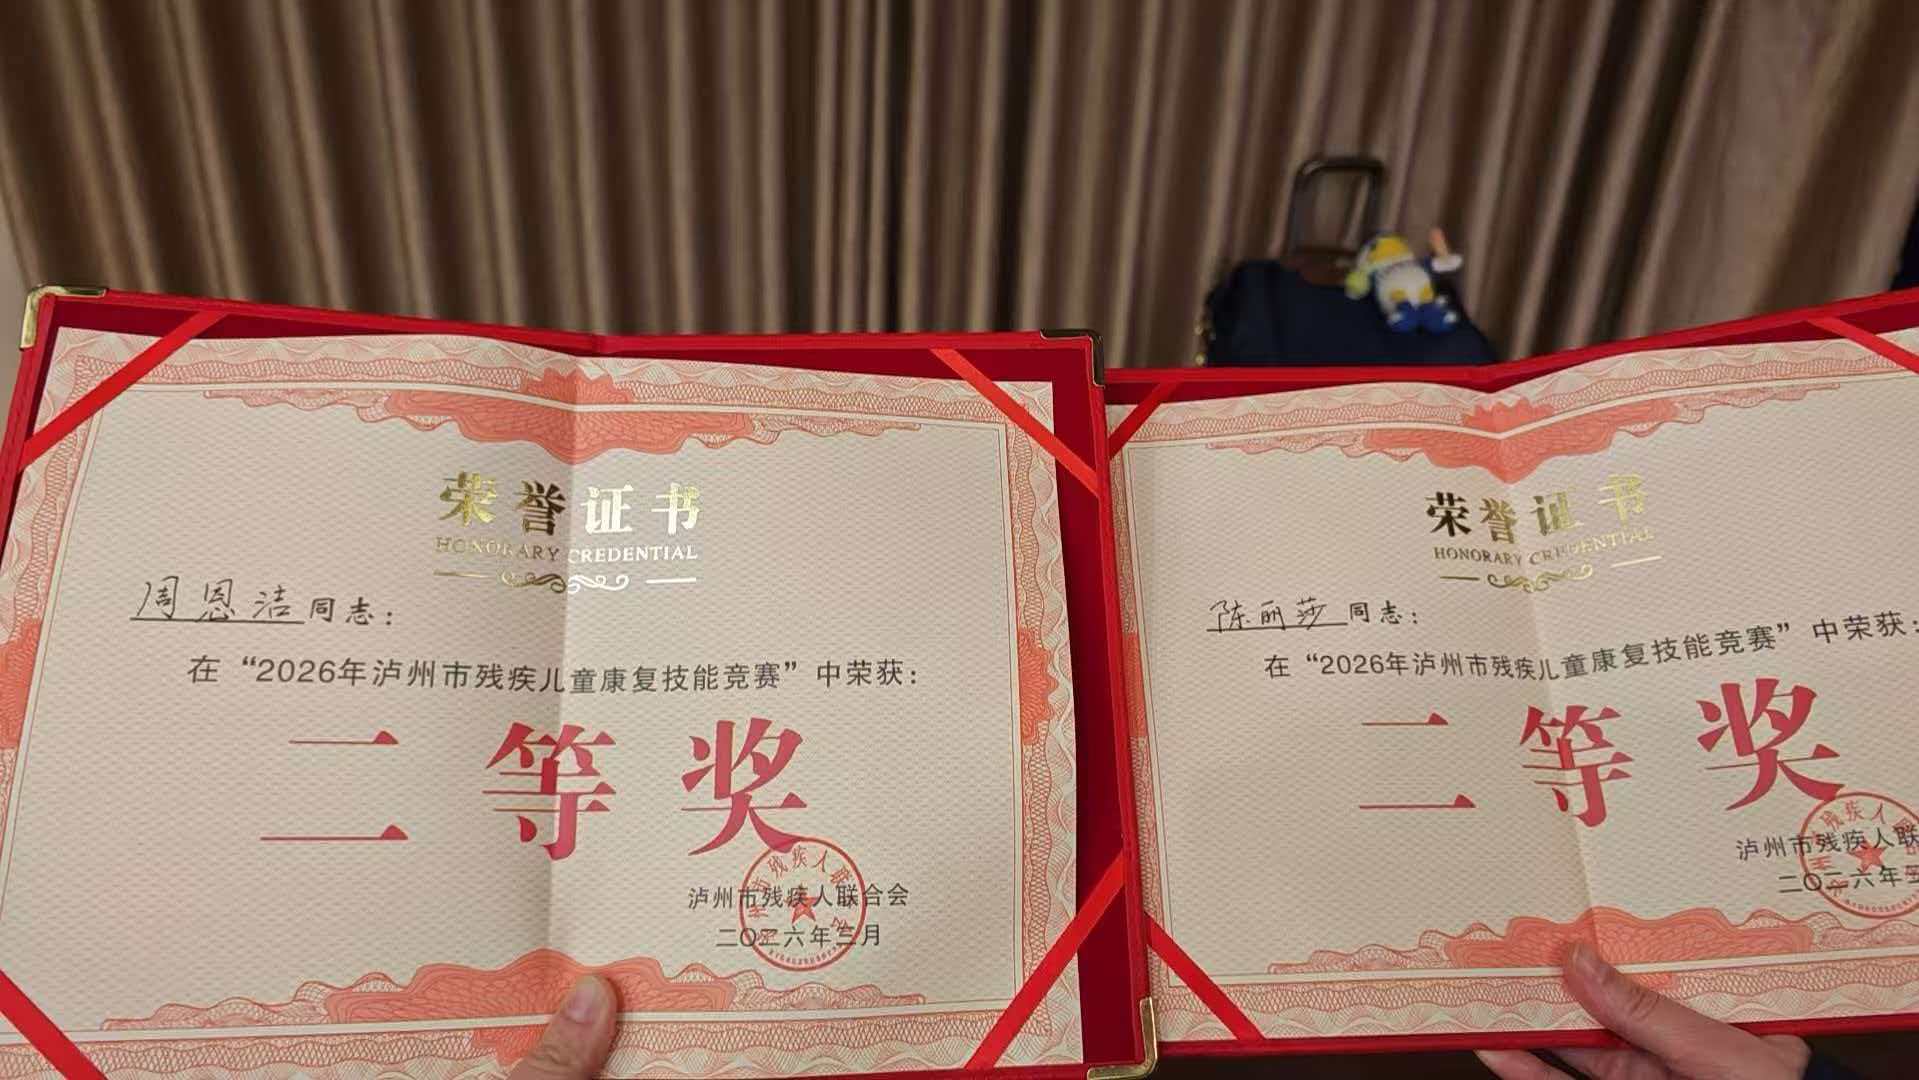 荣誉证书
HONORARY CREDENTIAL
周恩洁同志：
在“2026年泸州市残疾儿童康复技能竞赛”中荣获：
二等奖
泸州市残疾人联合会
二〇二六年三月
荣誉证书
HONORARY CREDENTIAL
陈丽莎同志：
在“2026年泸州市残疾儿童康复技能竞赛”中荣获：
二等奖
泸州市残疾人联
二〇二六年三